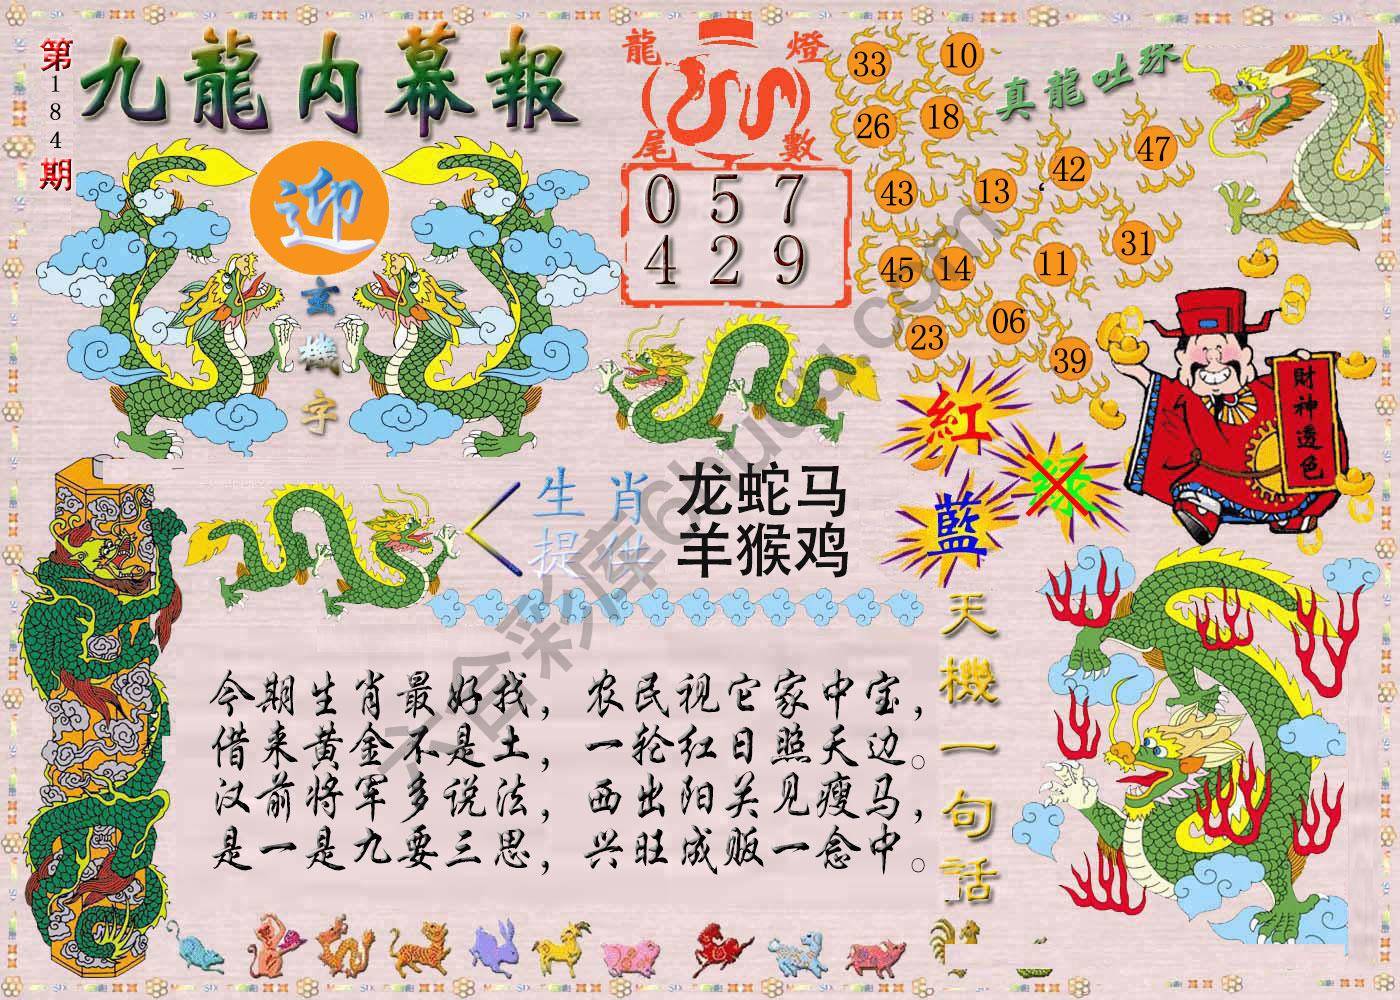 第184期
九龍内幕報
迎
玄機字
龍燈
尾數
0 5 7
4 2 9
真龍吐珠
33 10
26 18
43 13 42 47
45 14 11 31
23 06 39
財神透色
紅
綠
藍
生肖
提供
龙蛇马
羊猴鸡
今期生肖最好找，农民视它家中宝，
借来黄金不是土，一轮红日照天边。
汉前将军多说法，西出阳关见瘦马，
是一是九要三思，兴旺成贩一念中。
天機一句話
六合彩库6huuu.com